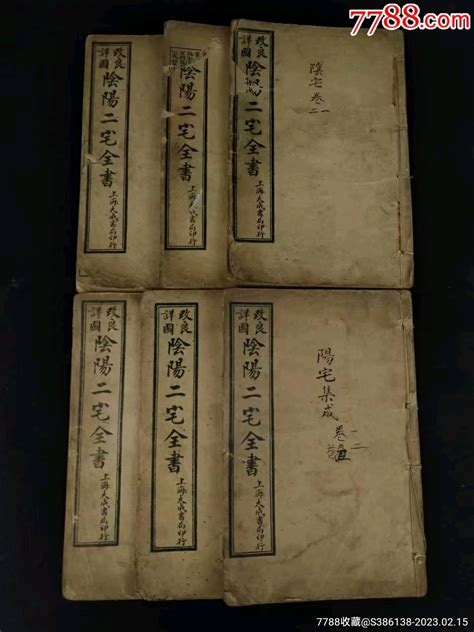 7788.com
改良
詳圖
陰陽二宅全書
上海大成書局印行
改良
詳圖
陰陽二宅全書
上海大成書局印行
改良
詳圖
陰陽二宅全書
上海大成書局印行
陰宅卷
一
二
改良
詳圖
陰陽二宅全書
上海大成書局印行
改良
詳圖
陰陽二宅全書
上海大成書局印行
改良
詳圖
陰陽二宅全書
上海大成書局印行
陽宅集成
卷
一
二
7788收藏@S386138-2023.02.15